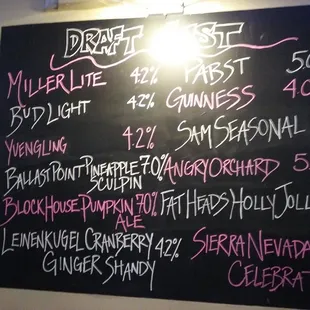 DRAFT LIST
MILLER LITE 4.2%
BUD LIGHT 4.2%
YUENGLING 4.2%
BALLAST POINT PINEAPPLE 7.0%
SCULPIN
BLOCKHOUSE PUMPKIN 7.0%
ALE
LEINENKUGEL CRANBERRY 4.2%
GINGER SHANDY
PABST 5.0
GUINNESS 4.0
SAM SEASONAL
ANGRY ORCHARD 5.
FAT HEADS HOLLY JOLL
SIERRA NEVADA
CELEBRAT